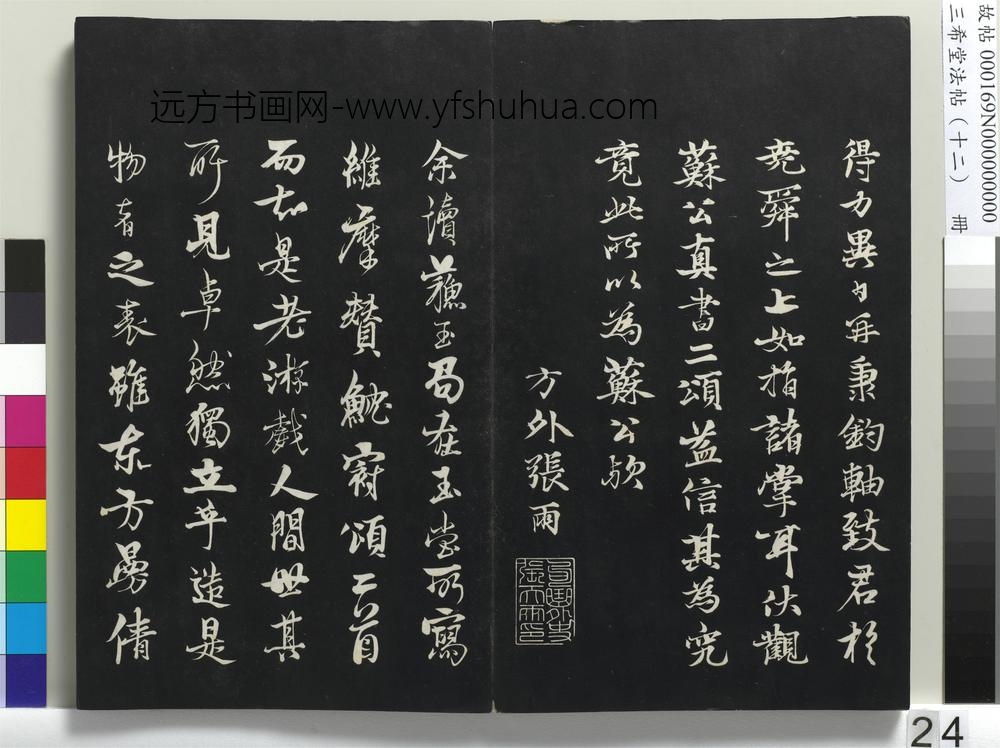 得力異日并秉鈞軸致君於
堯舜之上如指諸掌耳伏觀
蘇公真書二頌益信其為究
竟此所以為蘇公歟
方外張雨
余讀蘇玉局在玉堂所寫
維摩贊魷冠頌二首
而知是老游戲人間世其
所見卓然獨立乎造是
物者之表雖東方曼倩
远方书画网-www.yfshuhua.com
故帖 000169N000000000
三希堂法帖（十二） 冊
24